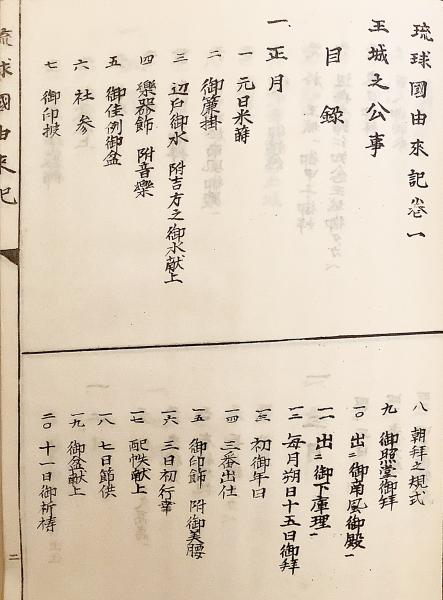 琉球國由來記卷一
王城之公事
目錄
一 正月
一 元日米蒔
二 御簾掛
三 辺戸御水 附吉方之御水献上
四 樂器飾 附音樂
五 御佳例御盆
六 社参
七 御印披
八 朝拜之規式
九 御照堂御拜
一〇 出ニ御南風御殿一
一一 出ニ御下庫理一
一二 每月朔日十五日御拜
一三 初御年日
一四 三番出仕
一五 御印飾 附御美腰
一六 三日初行幸
一七 配帙献上
一八 七日節供
一九 御盆献上
二〇 十一日御祈禱
琉球國由來記
二